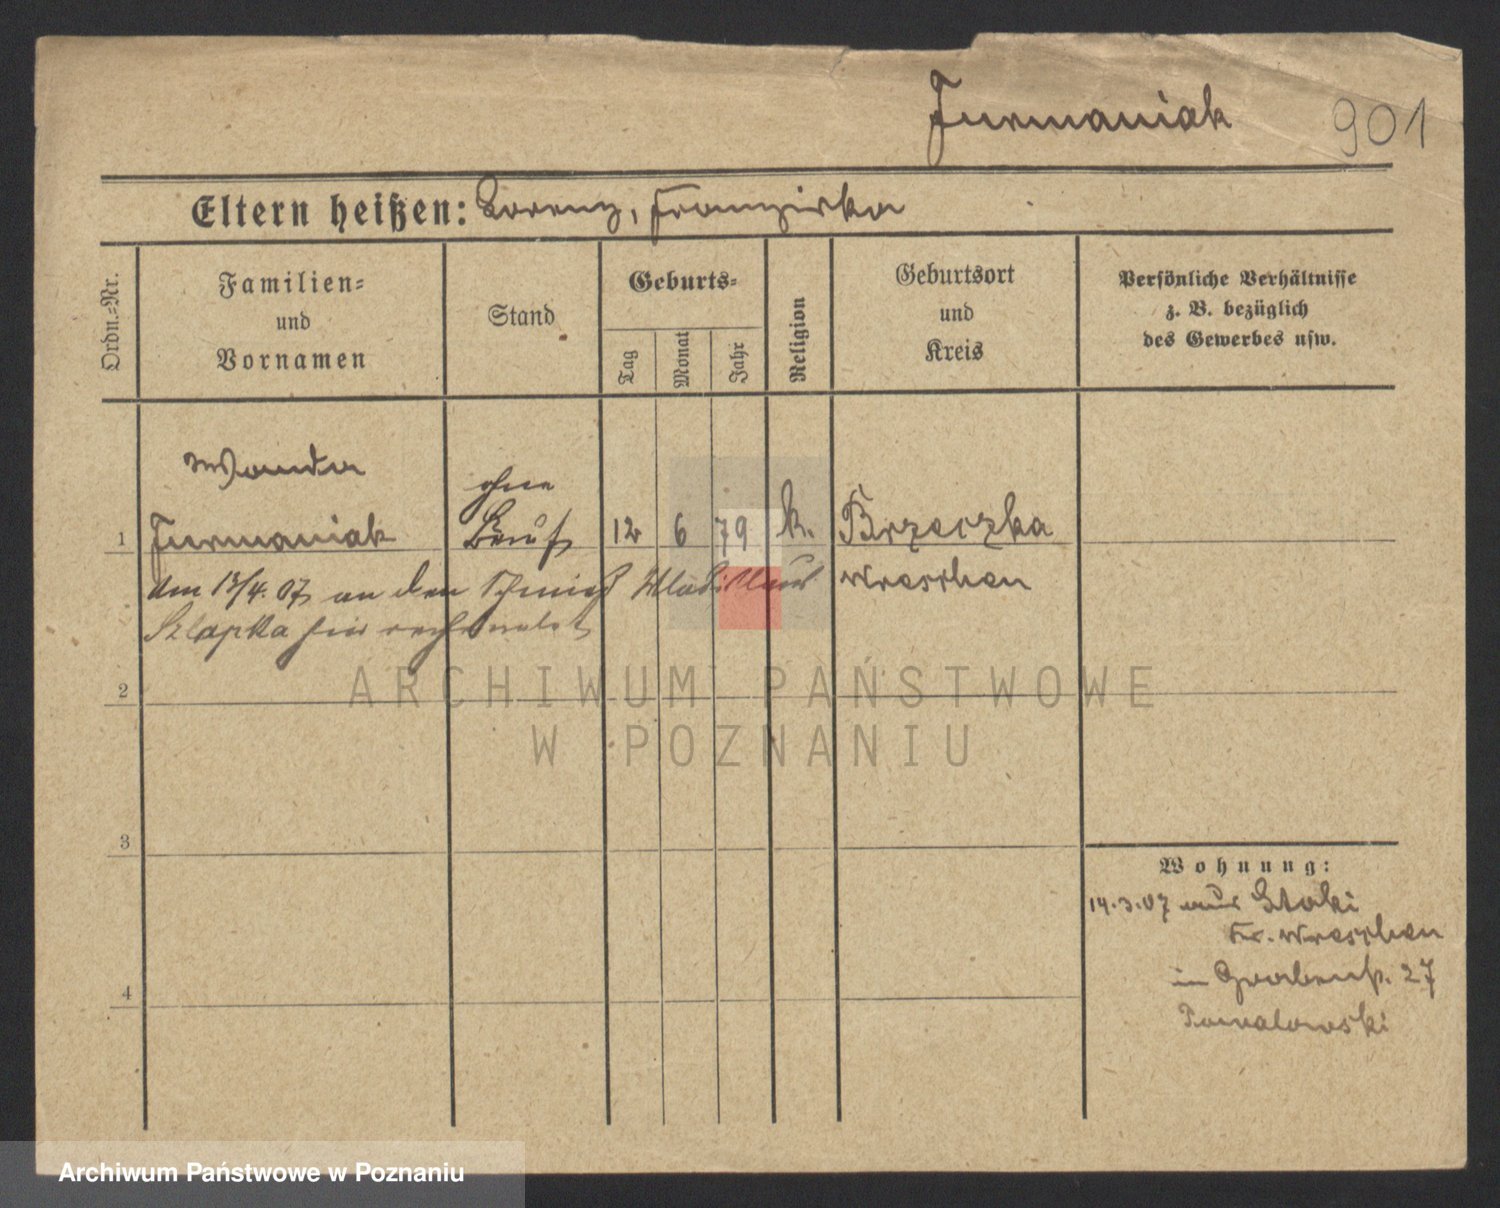 Furmaniak 901
Eltern heißen: Lorenz, Franziska
Ordn.-Nr.
Familien-
und
Vornamen
Stand
Geburts-
Tag
Monat
Jahr
Religion
Geburtsort
und
Kreis
Persönliche Verhältnisse
z. B. bezüglich
des Gewerbes usw.
Wanda
ohne
1 Furmaniak Beruf 12 6 79 k. Brzeczka
Am 13/4.07 an den Schmied Wladislaus Wreschen
Szlapka hier
2
ARCHIWUM PAŃSTWOWE
W POZNANIU
3
Wohnung:
14.3.07 aus
Kr. Wreschen
4
in Grabenstr. 27
Archiwum Państwowe w Poznaniu